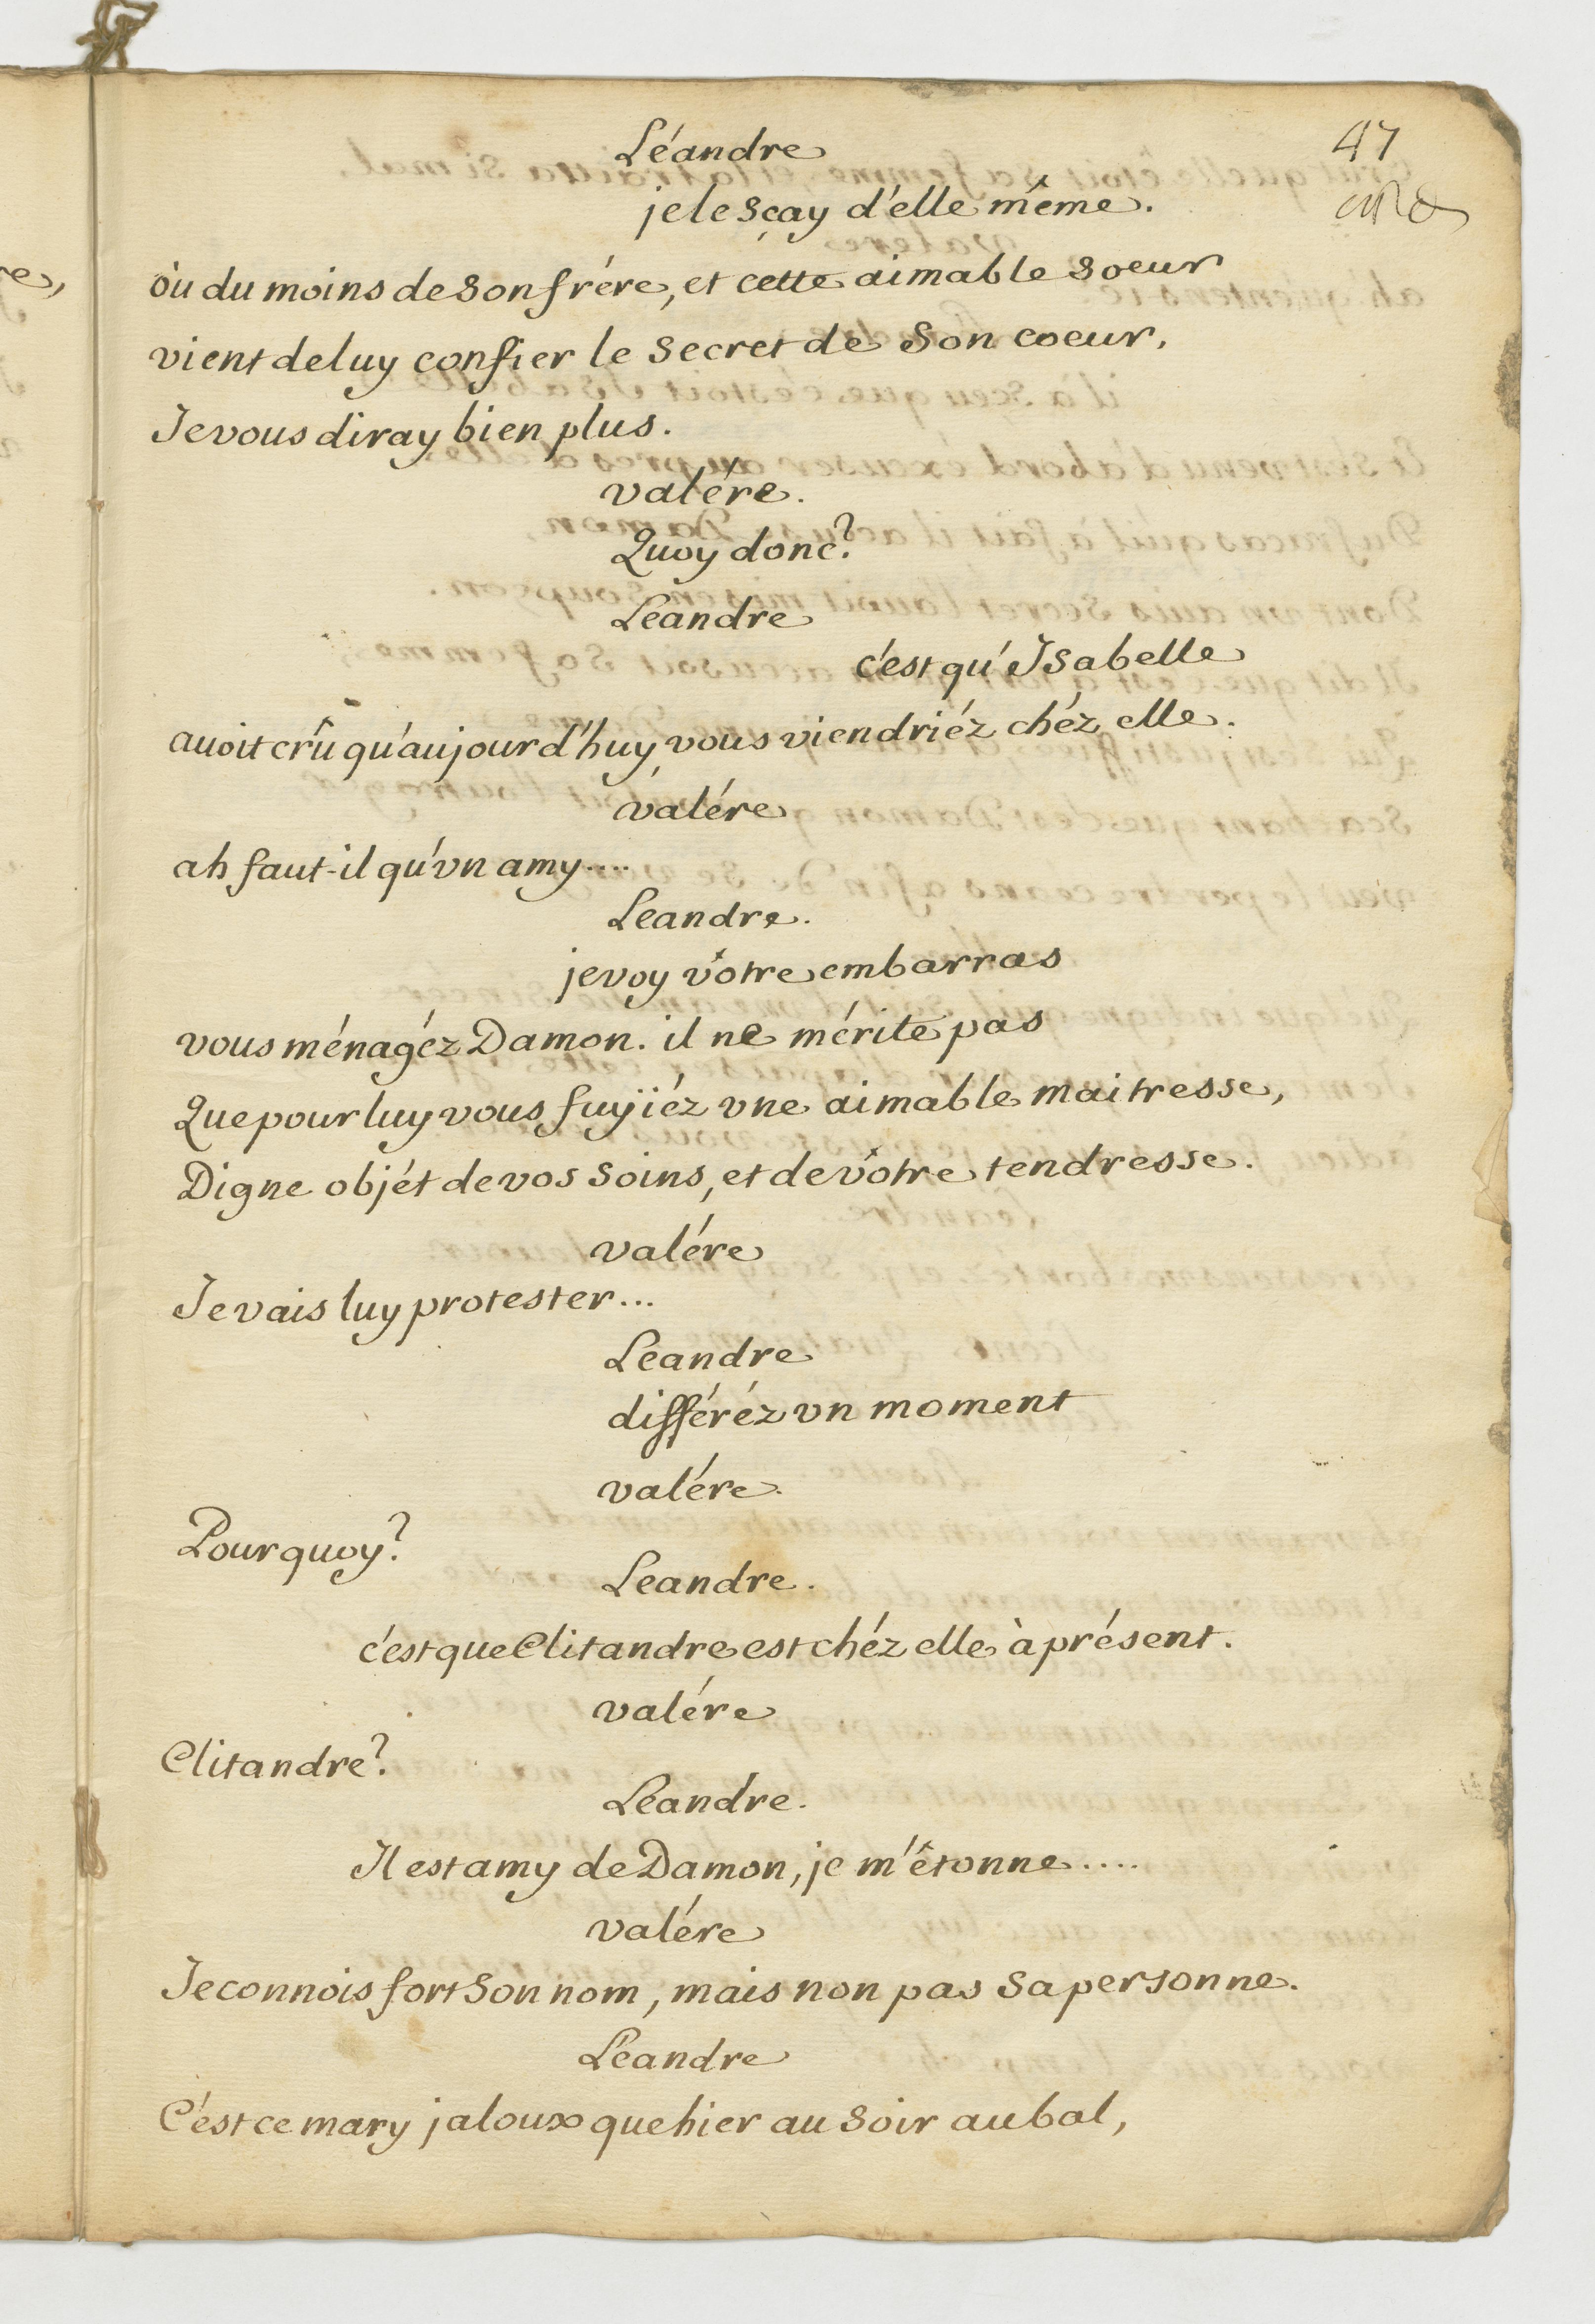 47
Léandre
je le sçay d'elle même.
où du moins de son frére, et cette aimable soeur
vient de luy confier le secret de son coeur,
Je vous diray bien plus.
valére.
Quoy donc?
Leandre
c'est qu'Isabelle
auoit crû qu'aujourd'huy vous viendriéz chéz elle.
valére
ah faut-il qu'vn amy....
Leandre.
je voy vôtre embarras
vous ménagéz Damon. il ne mérite pas
Que pour luy vous fuyïéz vne aimable maitresse,
Digne objét de vos soins, et de vôtre tendresse.
valére
Je vais luy protester...
Leandre
différéz vn moment
valére.
Pourquoy?
Leandre.
c'est que Clitandre est chéz elle à présent.
valére
Clitandre?
Léandre.
Il est amy de Damon, je m'étonne....
valére
Je connois fort son nom, mais non pas sa personne.
Léandre
C'est ce mary jaloux que hier au soir au bal,